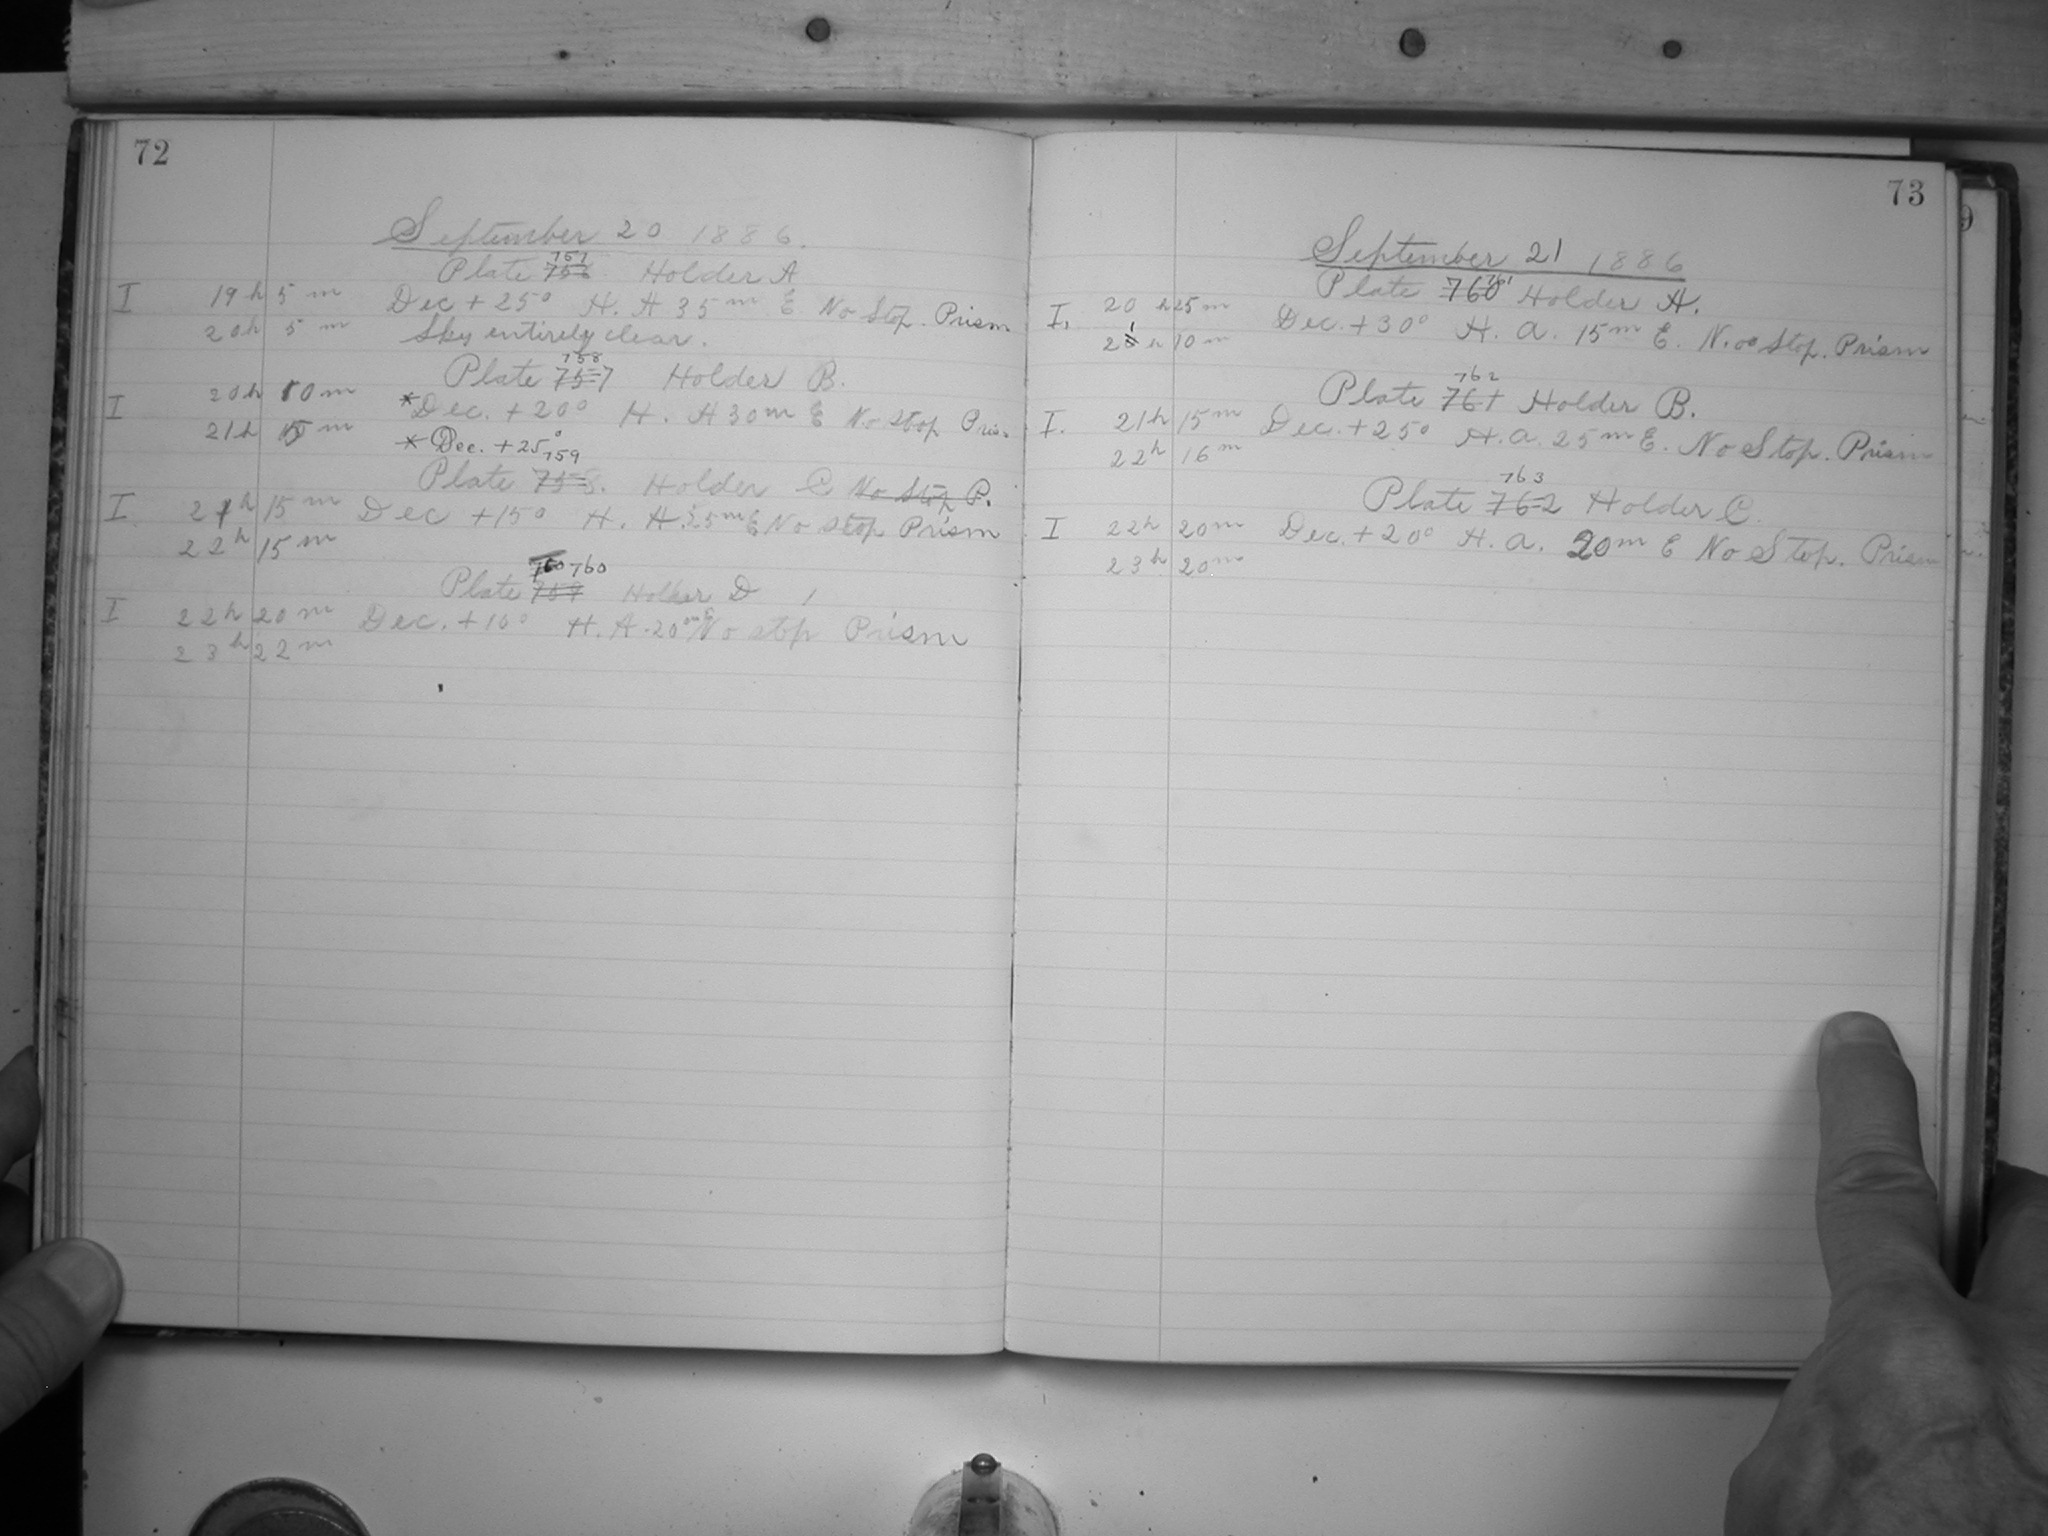 72
September 20 1886.
757
Plate 756 Holder A
I 19h 5m Dec + 25° H. A 35m E No Stop. Prism
20h 5m Sky entirely clear.
758
Plate 757 Holder B.
I 20h 10m *Dec. +20° H. A 30m E No Stop Pris.
21h 15m * Dec. +25°
759
Plate 758. Holder C No Stop P.
I 21h 15m Dec +15° H. A. 25m E No stop Prism
22h 15m
760 760
Plate 759 Holder D
I 22h 20m Dec. +10° H. A. 20m E No stop Prism
23h 22m
73
September 21 1886
761
Plate 760 Holder A.
I. 20h 25m Dec. +30° H. A. 15m E. No Stop. Prism
21h 10m
762
Plate 761 Holder B.
I. 21h 15m Dec. +25° H. A. 25m E. No Stop. Prism
22h 16m
763
Plate 762 Holder C.
I 22h 20m Dec. +20° H. A. 20m E No Stop. Prism
23h 20m